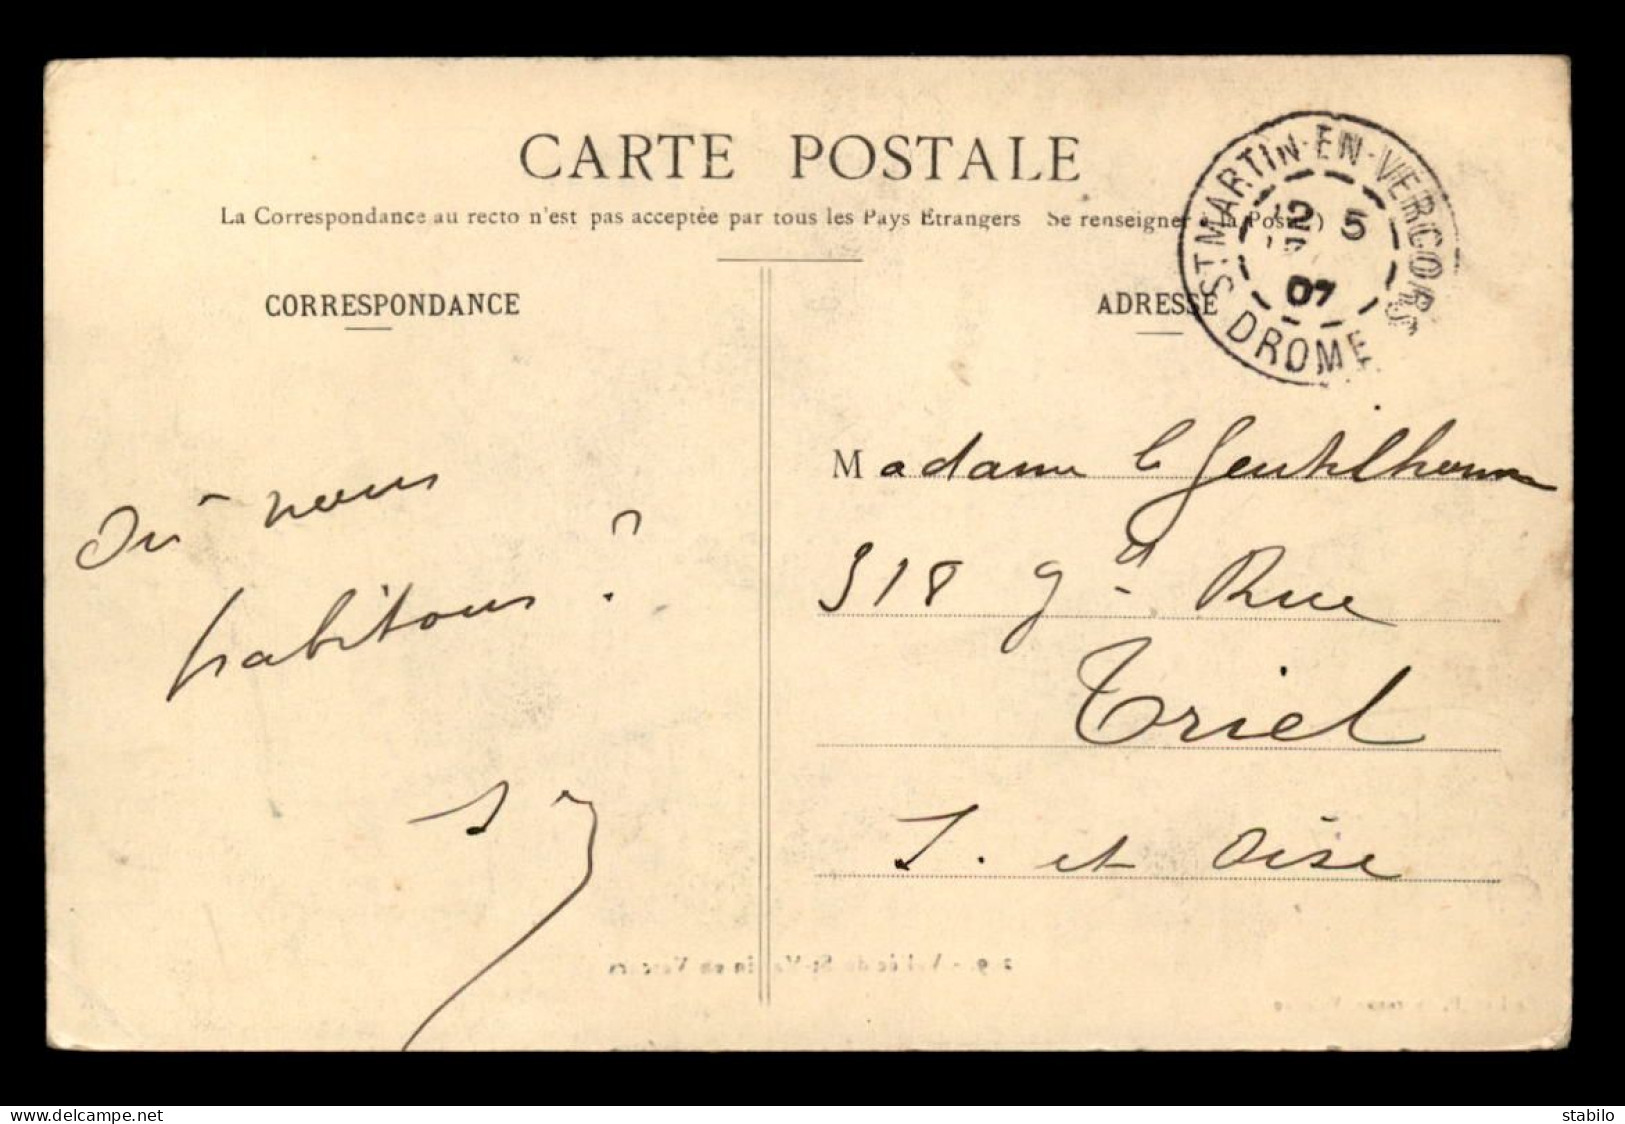 CARTE POSTALE
La Correspondance au recto n'est pas acceptée par tous les Pays Etrangers Se renseigner à la Poste)
CORRESPONDANCE
ADRESSE
ST MARTIN-EN-VERCORS
12 5
07
DROME
Où nous
habitons ?
Madame le Gentilhomme
318 Gde Rue
Triel
S. et Oise
29. - Vallée de St-Martin en Vercors
www.delcampe.net
stabilo